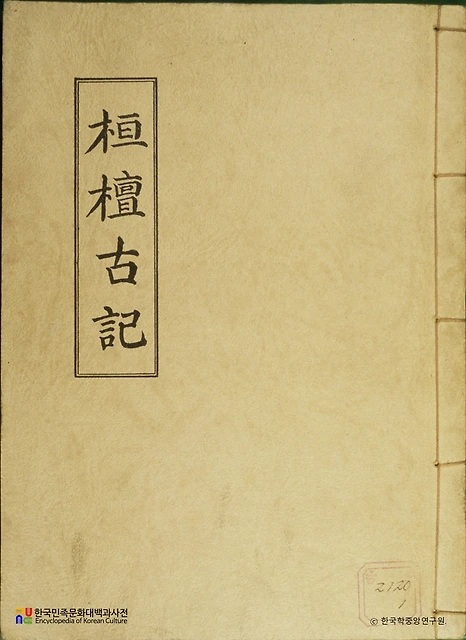 桓檀古記
2120
1
한국민족문화대백과사전
Encyclopedia of Korean Culture
© 한국학중앙연구원